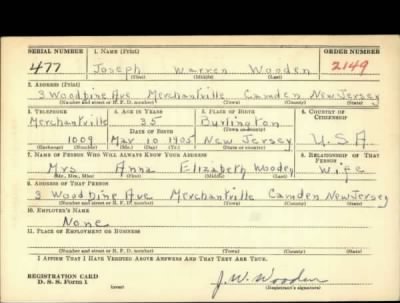 SERIAL NUMBER 1. NAME (Print) ORDER NUMBER
477 Joseph Warren Wooden 2149
(First) (Middle) (Last)
2. ADDRESS (Print)
3 Woodbine Ave Merchantville Camden New Jersey
(Number and street or R. F. D. number) (Town) (County) (State)
3. TELEPHONE 4. AGE IN YEARS 5. PLACE OF BIRTH 6. COUNTRY OF CITIZENSHIP
Merchantville 35 Burlington
DATE OF BIRTH (Town or county)
1009 Mar 10 1905 New Jersey U.S.A
(Exchange) (Number) (Mo.) (Day) (Yr.) (State or country)
7. NAME OF PERSON WHO WILL ALWAYS KNOW YOUR ADDRESS 8. RELATIONSHIP OF THAT PERSON
Mrs Anna Elizabeth Wooden Wife
(Mr., Mrs., Miss) (First) (Middle) (Last)
9. ADDRESS OF THAT PERSON
3 Woodbine Ave Merchantville Camden New Jersey
(Number and street or R. F. D. number) (Town) (County) (State)
10. EMPLOYER'S NAME
None
11. PLACE OF EMPLOYMENT OR BUSINESS
(Number and street or R. F. D. number) (Town) (County) (State)
I AFFIRM THAT I HAVE VERIFIED ABOVE ANSWERS AND THAT THEY ARE TRUE.
REGISTRATION CARD J. W. Wooden
D. S. S. Form 1 (over) (Registrant's signature)